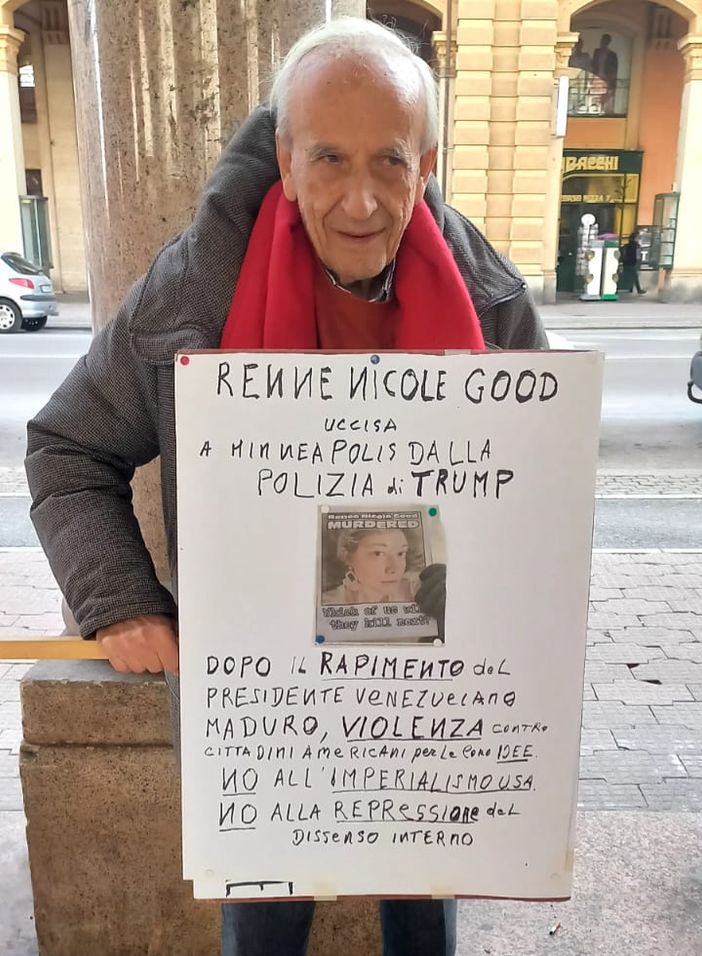 RENNE NICOLE GOOD
UCCISA
A MINNEAPOLIS DALLA
POLIZIA di TRUMP
Renee Nicole Good
MURDERED
Which of us wi
they kill next?
DOPO IL RAPIMENTO del
PRESIDENTE VENEZUELANO
MADURO, VIOLENZA CONTRO
CITTADINI AMERICANI per le loro IDEE.
NO ALL'IMPERIALISMO USA.
NO ALLA REPRESSIONE del
DISSENSO INTERNO
BACCHI